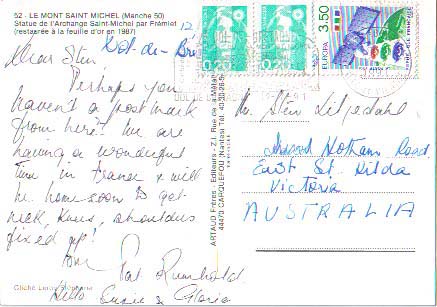 52 - LE MONT SAINT MICHEL (Manche 50)
Statue de l'Archange Saint-Michel par Frémiet
(restaurée à la feuille d'or en 1987)
Dol-de-
12
Dear Stin,
Perhaps you
haven't a post mark
from here? We are
having a wonderful
time in France & will
be home soon to get
neck, knees, shoulders
fixed up!
Love
Pat Rumbold.
Hello Susie & Gloria
Cliché
ARTAUD Frères - Editeurs -
44470 CARQUEFOU (Nantes) Tél.
0,20
0,20
EUROPA
3,50
Mr Stin
Hotham Road
East St. Kilda
Victoria
AUSTRALIA